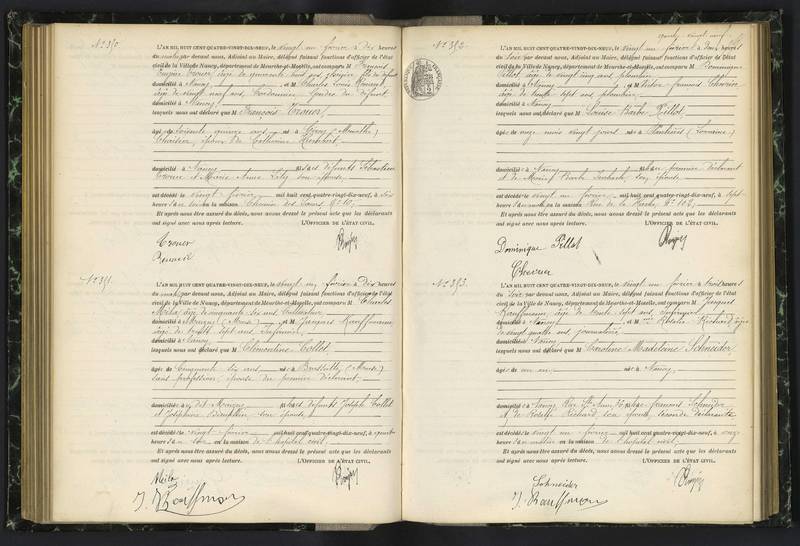 N° 350
L'AN MIL HUIT CENT QUATRE-VINGT-DIX-NEUF, le vingt un février à dix heures
du matin par devant nous, Adjoint au Maire, délégué faisant fonctions d'officier de l'état
civil de la Ville de Nancy, département de Meurthe-et-Moselle, ont comparu M
Eugène Crouer âgé de quarante huit ans, fils du défunt
domicilié à Nancy et M Charles Louis
âgé de vingt neuf ans, Cordonnier, Gendre du défunt
domicilié à Nancy
lesquels nous ont déclaré que M François Crouer,
âgé de soixante quinze ans né à (Meurthe)
époux de Catherine Humbert,
domicilié à Nancy fils des défunts Sébastien
Crouer et Marie Anne son épouse,
est décédé le vingt février, mil huit cent quatre-vingt-dix-neuf, à six
heures du soir en la maison Chemin des N° 10,
Et après nous être assuré du décès, nous avons dressé le présent acte que les déclarants
ont signé avec nous après lecture. L'OFFICIER DE L'ÉTAT CIVIL,
Crouer
N° 351
L'AN MIL HUIT CENT QUATRE-VINGT-DIX-NEUF, le vingt un février à dix heures
du matin par devant nous, Adjoint au Maire, délégué faisant fonctions d'officier de l'état
civil de la Ville de Nancy, département de Meurthe-et-Moselle, ont comparu M Charles
âgé de cinquante six ans
domicilié à (Meuse) et M Jacques Kauffmann
âgé de trente sept ans, infirmier,
domicilié à Nancy
lesquels nous ont déclaré que M Clémentine Collot,
âgée de cinquante six ans née à (Meuse)
sans profession, épouse du premier déclarant,
domiciliée au dit fille des défunts Joseph Collot
et Joséphine son épouse,
est décédée le vingt février mil huit cent quatre-vingt-dix-neuf, à quatre
heures du soir en la maison de l'hôpital civil.
Et après nous être assuré du décès, nous avons dressé le présent acte que les déclarants
ont signé avec nous après lecture. L'OFFICIER DE L'ÉTAT CIVIL,
J. Kauffmann
quatre vingt neuf
N° 352.
L'AN MIL HUIT CENT QUATRE-VINGT-DIX-NEUF, le vingt un février à deux heures
du soir par devant nous, Adjoint au Maire, délégué faisant fonctions d'officier de l'état
civil de la Ville de Nancy, département de Meurthe-et-Moselle, ont comparu M Dominique
Pillot âgé de vingt cinq ans, plombier
domicilié à Nancy et M Victor
âgé de trente sept ans, plombier,
domicilié à Nancy
lesquels nous ont déclaré que M Louise Barbe Pillot,
âgée de onze mois vingt jours née à (Lorraine)
domiciliée à Nancy fille du premier déclarant
et de son épouse,
est décédée le vingt un février, mil huit cent quatre-vingt-dix-neuf, à sept
heures du matin en la maison Rue de la N° 102,
Et après nous être assuré du décès, nous avons dressé le présent acte que les déclarants
ont signé avec nous après lecture. L'OFFICIER DE L'ÉTAT CIVIL,
Dominique Pillot
N° 353.
L'AN MIL HUIT CENT QUATRE-VINGT-DIX-NEUF, le vingt un février à trois heures
du soir par devant nous, Adjoint au Maire, délégué faisant fonctions d'officier de l'état
civil de la Ville de Nancy, département de Meurthe-et-Moselle, ont comparu M Jacques
Kauffmann, âgé de trente sept ans, infirmier
domicilié à Nancy et M Rosalie Richard, âgée
de vingt quatre ans, journalière,
domiciliée à Nancy
lesquels nous ont déclaré que M Caroline Madeleine Schneider,
âgée de un an née à Nancy,
domiciliée à Nancy Rue Ste Anne fille de François Schneider
et de Rosalie Richard, son épouse, seconde déclarante
est décédée le vingt un février mil huit cent quatre-vingt-dix-neuf, à onze
heures du matin en la maison de l'hôpital civil,
Et après nous être assuré du décès, nous avons dressé le présent acte que les déclarants
ont signé avec nous après lecture. L'OFFICIER DE L'ÉTAT CIVIL,
Schneider
J. Kauffmann